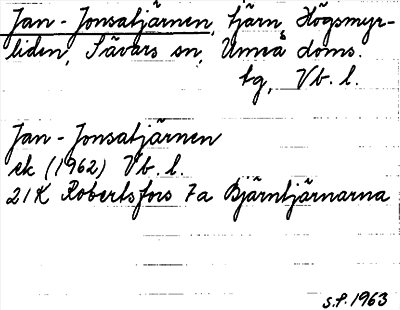 Jan-Jonsatjärnen, tjärn, Högsmyr-
liden, Sävars sn, Umeå doms.
tg, Vb. l.
Jan-Jonsatjärnen
ek (1962) Vb. l.
21K Robertsfors 7a Bjärntjärnarna
s.f. 1963